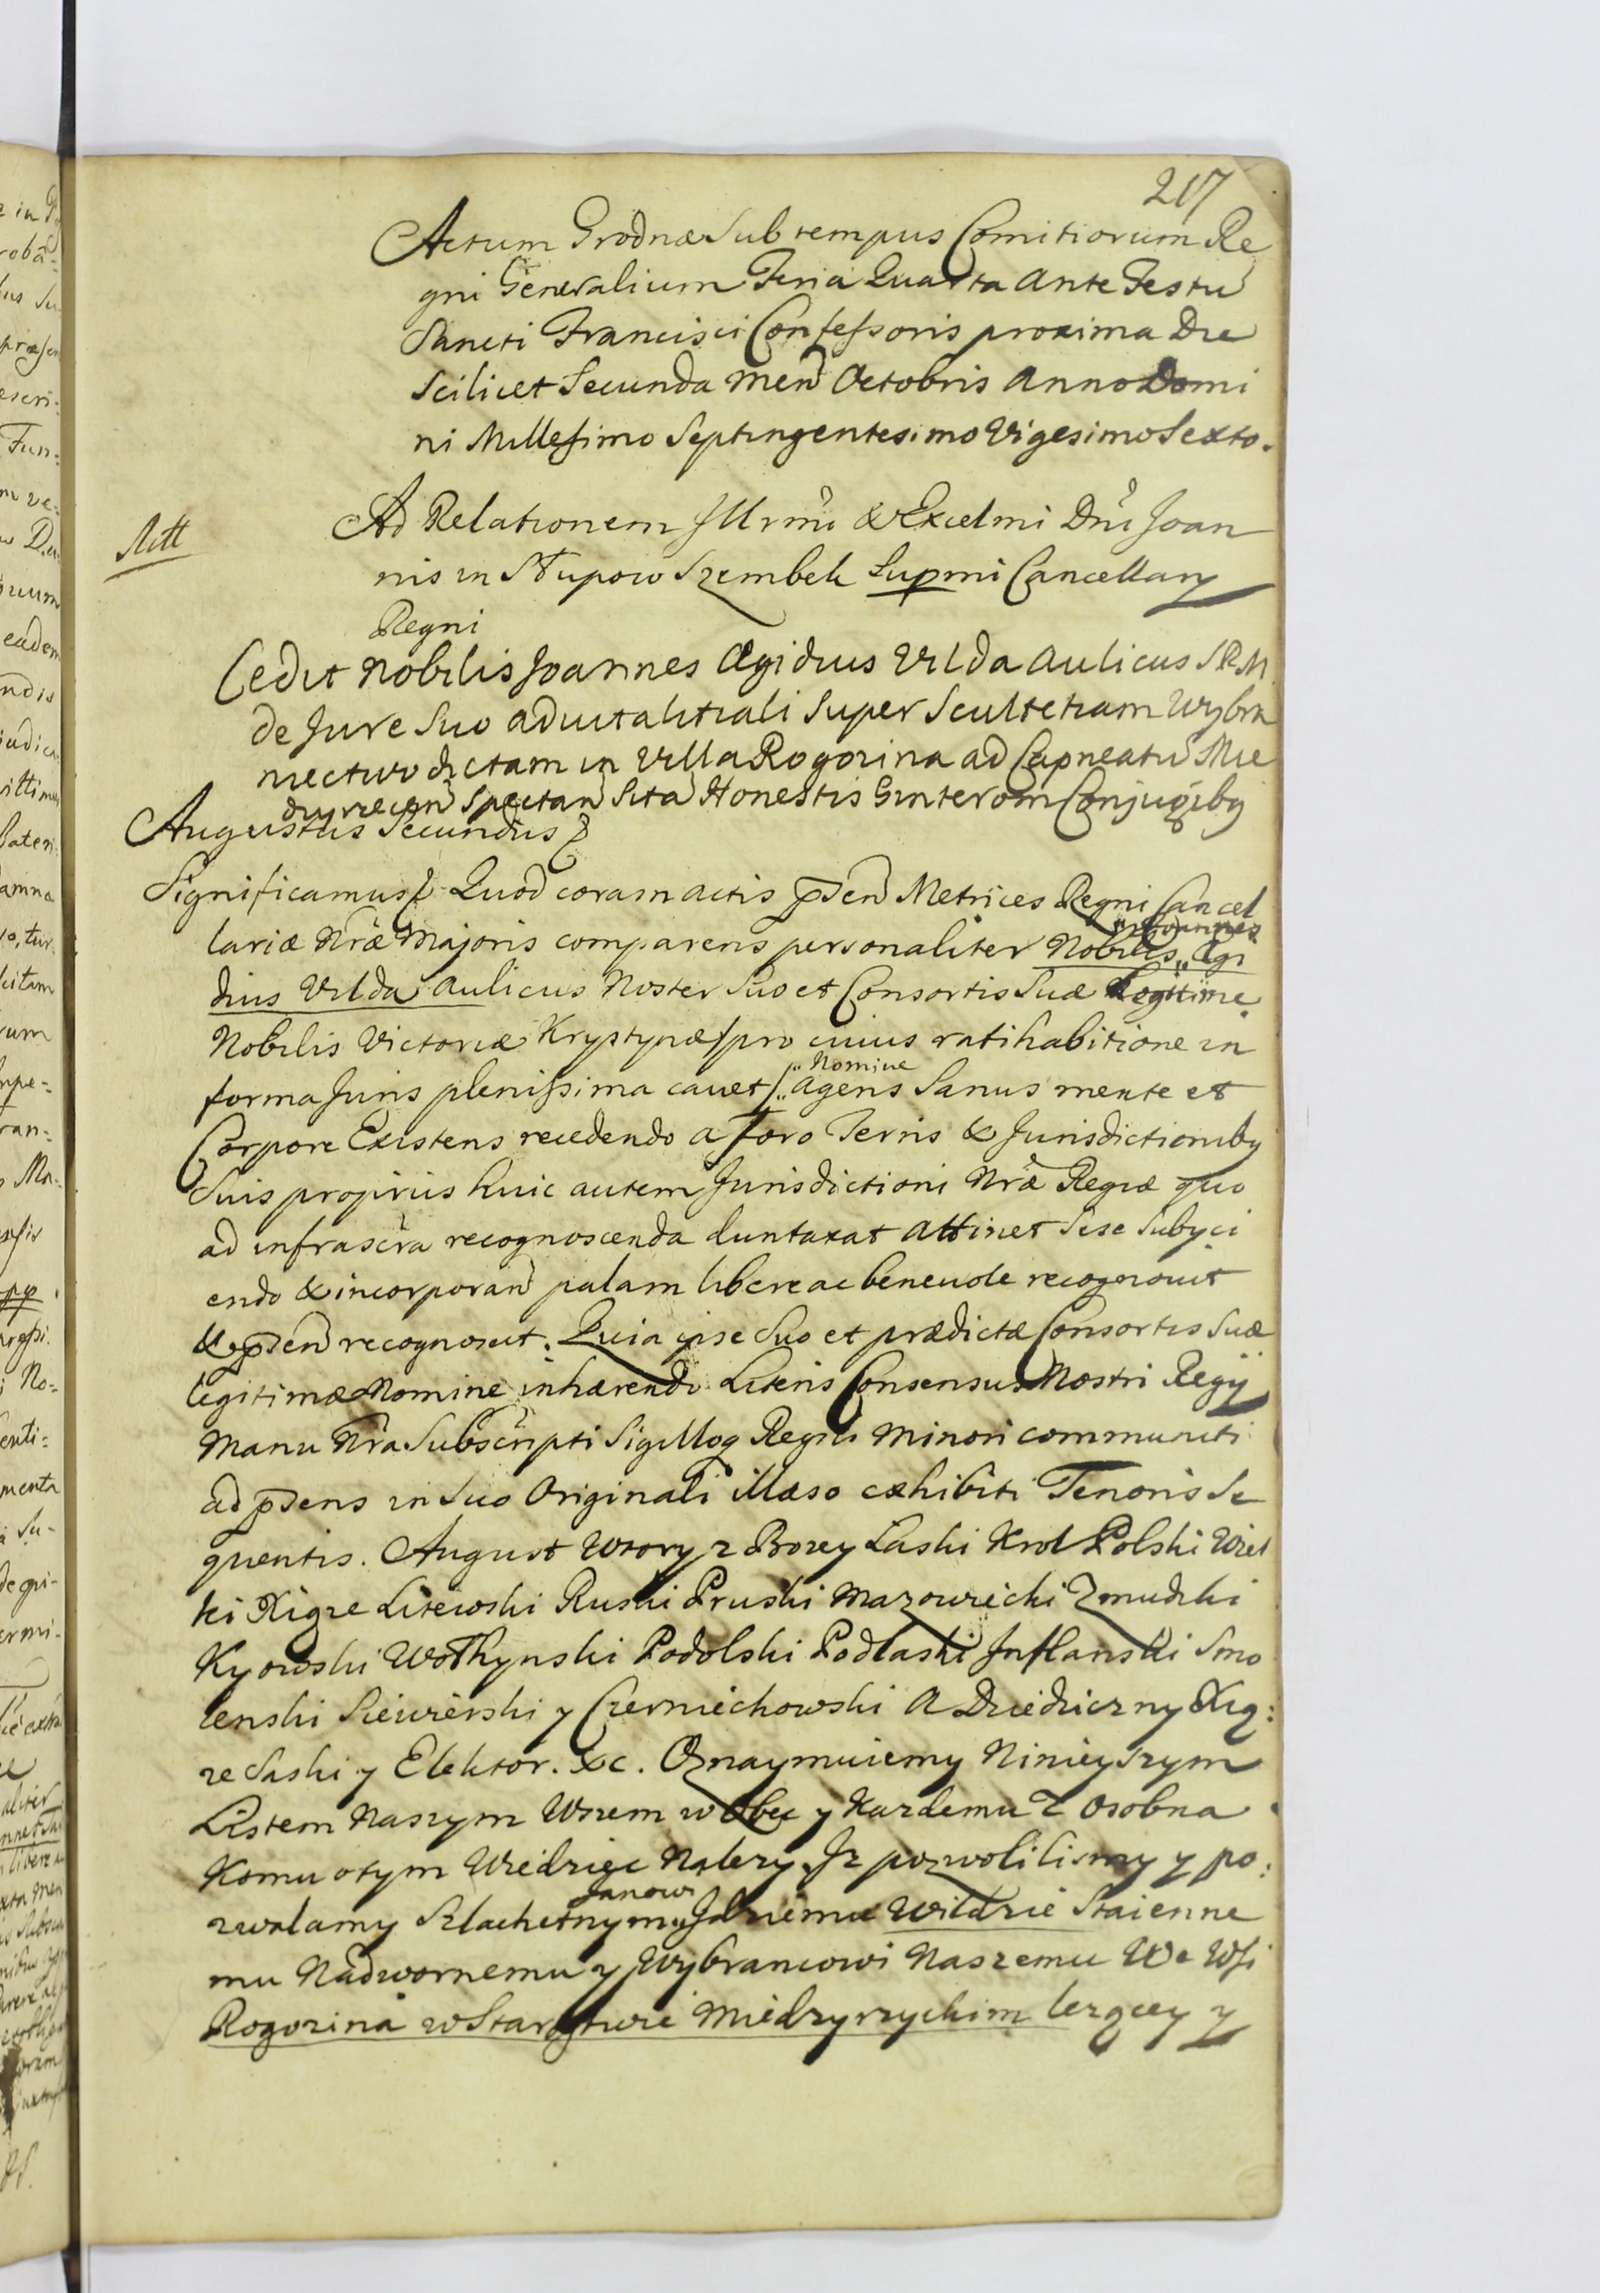 217
Actum Grodnæ Sub tempus Comitiorum Re
gni Generalium Feria Quarta Ante Festu
Sancti Francisci Confessoris proxima Die
Scilicet Secunda Men Octobris Anno Domi
ni Millesimo Septingentesimo Vigesimo Sexto.
Ad Relationem Illrmi & Excelmi Dni Joan
nis in Słupow Szembek Supmi Cancellary
Regni
Cedit Nobilis Joannes Ægidius Vilda Aulicus SRM
de Jure Suo aduitalitiali Super Scultetiam Wybra
niectwo dictam in Villa Rogozina ad Capneatu Mie
dzyrecen Spectan Sita Honestis Ginterom Conjugiby
Augustus Secundus
Significamus Quod coram actis psen Metrices Regni Cancel
lariæ Nræ Majoris comparens personaliter Nobilis Joannes Ægi
dius Vilda Aulicus Noster Suo et Consortis Suæ Legitime
Nobilis Victoriæ Krystynæ /pro cuius ratihabitione in
forma Juris plenissima cauet/ Nomine agens Sanus mente et
Corpore Existens recedendo a Foro Terris & Jurisdictioniby
Suis propriis huic autem Jurisdictioni Nræ Regiæ quo
ad infrascra recognoscenda duntaxat attinet Sese Subyci
endo & incorporan palam libere ac beneuole recognouit
& psen recognoscit. Quia ipse Suo et prædictæ Consortis Suæ
legitimæ Nomine inhærendo Literis Consensus Nostri Regij
Manu Nra Subscripti Sigilloq Regni Minori communiti
ad psens in Suo Originali illæso exhibiti Tenoris Se
quentis. August Wtory z Bozey Łaski Krol Polski Wiel
ki Xiąze Litewski Ruski Pruski Mazowiecki Zmudzki
Kyowski Wołhynski Podolski Podlaski Inflanski Smo
lenski Siewierski y Czerniechowski A Dziedziczny Xią:
ze Saski y Elektor. &c. Oznaymuiemy Ninieyszym
Listem Naszym Wszem w Obec y Kazdemu Z Osobna
Komu otym Wiedziec Nalezy. Iz pozwolilismy y po:
zwalamy Szlachetnym Janowi Idziemu Wildzie Staienne
mu Nadwornemu y Wybrancowi Naszemu We Wsi
Rogozina w Starostwie Miedzyrzyckim lezącey y